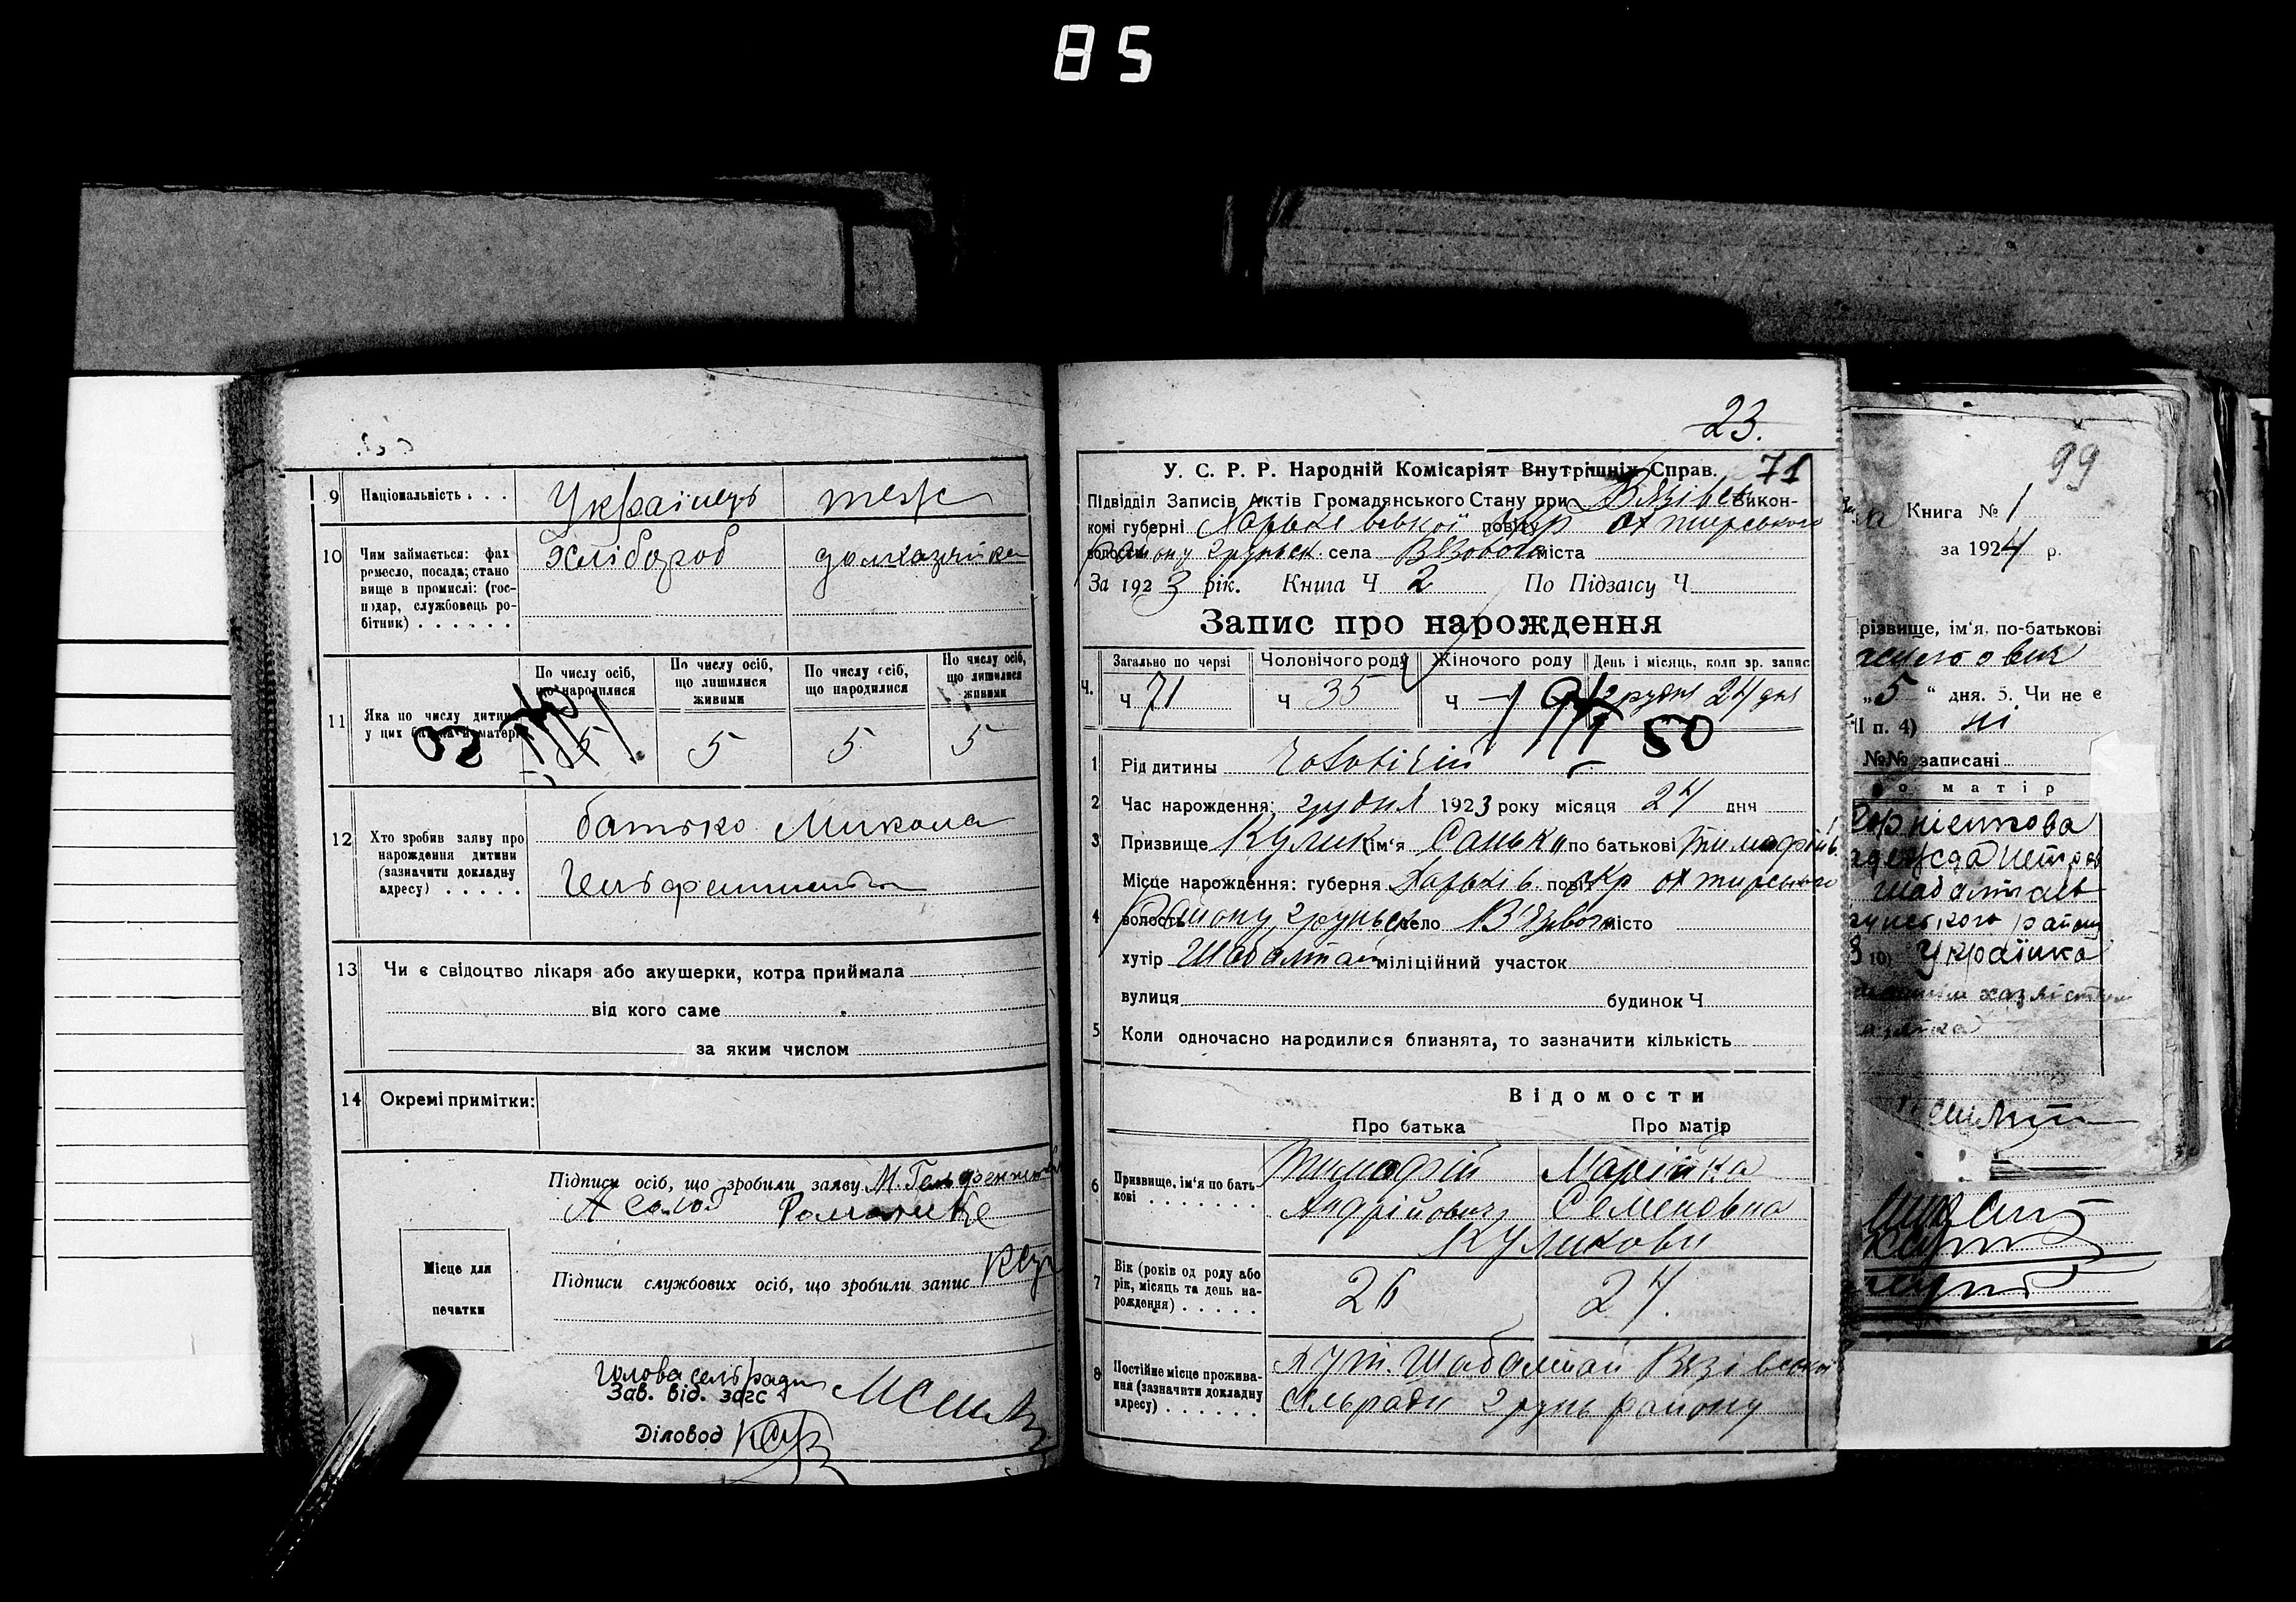 85
9 Національність . . . Українець теж
10 Чим займається: фах Хлібороб домхазяйка
ремесло, посада; стано
вище в промислі: (гос-
подар, службовець ро-
бітник) . . . . . .
По числу осіб, що народилися
По числу осіб, що лишилися живими
По числу осіб, що народилися
По числу осіб, що лишилися живими
11 Яка по числу дитина
у цих батька й матері 5 5 5 5
50
12 Хто зробив заяву про батько Микола
нарождення дитини
(зазначити докладну
адресу) . . . . .
13 Чи є свідоцтво лікаря або акушерки, котра приймала
від кого саме
за яким числом
14 Окремі примітки:
Підписи осіб, що зробили заяву М.
Підписи службових осіб, що зробили запис
Місце для
печатки
Голова сельради
Зав. від. загс
Діловод
23.
У. С. Р. Р. Народній Комісаріят Внутрішніх Справ. 71
Підвідділ Записів Актів Громадянського Стану при Вязівск Викон-
комі губерні Харьківської повіту окр охтирського
волости району грунськ. села Вязового міста
За 1923 рік. Книга Ч 2 По Підзагсу Ч
Запис про нарождення
Загально по черзі Чоловічого роду Жіночого роду День і місяць, коли зр. запис
Ч. Ч 71 Ч 35 Ч — грудня 24 дня
50
1 Рід дитини чоловічий
2 Час нарождення: грудня 1923 року місяця 24 дня
3 Призвище Кулик ім'я Санько по батькові Тимофіїв.
Місце нарождення: губерня Харьків. повіт окр охтирського
4 волость району грунськ село В'язового місто
хутір Шабалтаи міліційний участок
вулиця будинок Ч
5 Коли одночасно народилися близнята, то зазначити кількість
Відомости
Про батька Про матір
6 Призвище, ім'я по бать- Тимофій Марійка
кові . . . . . . Андрійович Семеновна
Куликови
7 Вік (років од роду або
рік, місяць та день на- 26 24.
рождення) . . . . .
8 Постійне місце прожива- хут. Шабалтаи Вязівської
ння (зазначити докладну
адресу) . . . . . . сельради грунь району
99
Книга № 1
за 1924 р.
різвище, ім'я, по-батькові
„5" дня. 5. Чи не є
II п. 4) ні
№№ записані
о матір
району
10) Українка